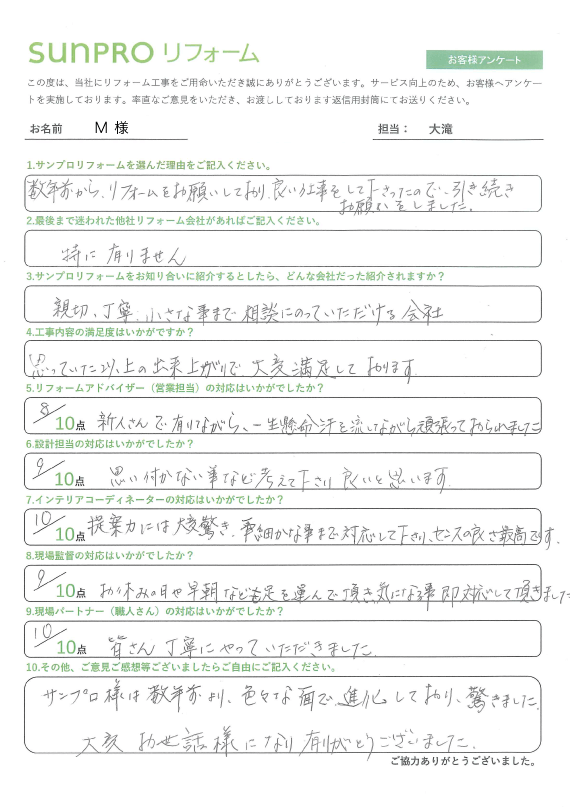 SUNPRO リフォーム
お客様アンケート
この度は、当社にリフォーム工事をご用命いただき誠にありがとうございます。サービス向上のため、お客様へアンケー
トを実施しております。率直なご意見をいただき、お渡ししております返信用封筒にてお送りください。
お名前 M 様 担当： 大滝
1.サンプロリフォームを選んだ理由をご記入ください。
数年前から、リフォームをお願いしており、良い工事をして下さったので、引き続き
お願いをしました。
2.最後まで迷われた他社リフォーム会社があればご記入ください。
特に有りません
3.サンプロリフォームをお知り合いに紹介するとしたら、どんな会社だった紹介されますか？
親切、丁寧、小さな事まで相談にのっていただける会社
4.工事内容の満足度はいかがですか？
思っていた以上の出来上がりで、大変満足しております。
5.リフォームアドバイザー（営業担当）の対応はいかがでしたか？
8/10点 新人さんで有りながら、一生懸命汗を流しながら頑張っておられました
6.設計担当の対応はいかがでしたか？
9/10点 思い付かない事など考えて下さり良いと思います。
7.インテリアコーディネーターの対応はいかがでしたか？
10/10点 提案力には大変驚き、事細かな事まで対応して下さり、センスの良さ最高です。
8.現場監督の対応はいかがでしたか？
9/10点 お休みの日や早朝など足を運んで頂き気になる事即対応して頂きました
9.現場パートナー（職人さん）の対応はいかがでしたか？
10/10点 皆さん丁寧にやっていただきました。
10.その他、ご意見ご感想等ございましたらご自由にご記入ください。
サンプロ様は数年前より、色々な面で進化しており、驚きました。
大変お世話様になり有りがとうございました。
ご協力ありがとうございました。